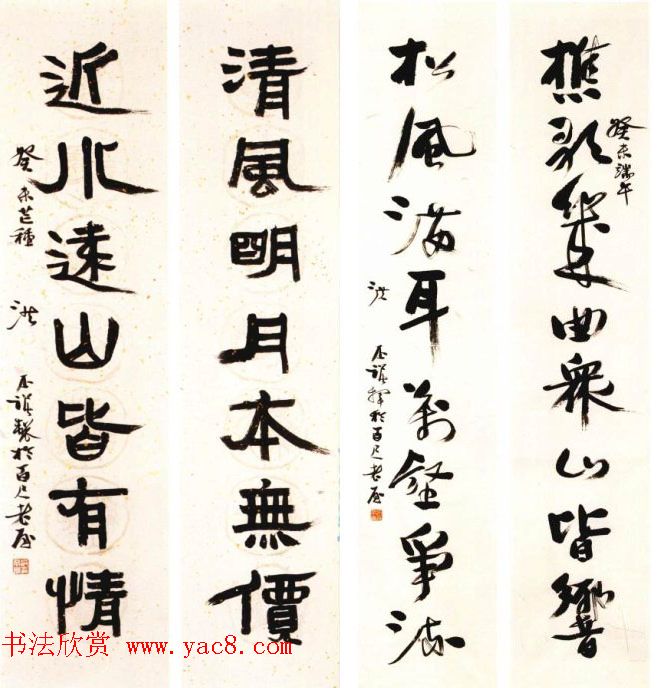 樵歌幾曲衆山皆響
癸未端午
松風滿耳萬壑爭流
洪丕謨揮於百尺老屋
清風明月本無價
近水遠山皆有情
癸未芒種
洪丕謨製於百尺老屋
书法欣赏 www.yac8.com